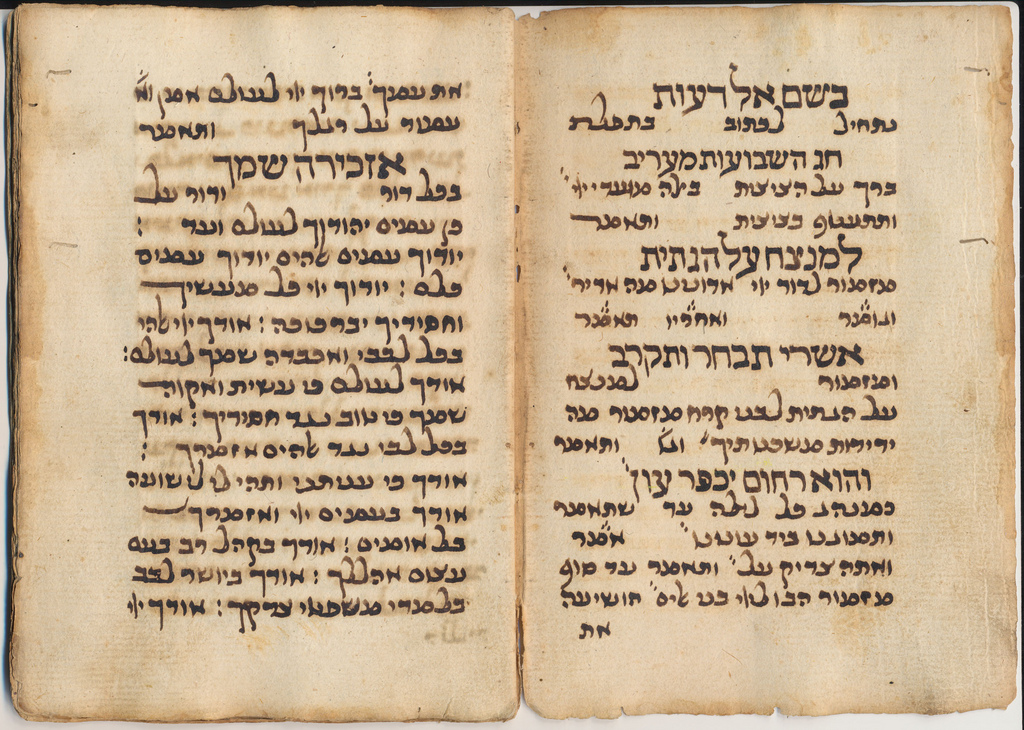 בשם אל דעות
נתחיל לכתוב בתפלת
חג השבועות מעריב
ברך על הציצית בילה מועדי יי'
ותתעטף בציצית ותאמר
למנצח על הגתית
מזמור לדוד יי' אדונינו מה אדיר'
ואחריו תאמר
אשרי תבחר ותקרב
ומזמור למנצח
על הגתית לבני קרח מזמור מה
ידידות משכנותיך' ותאמר
והוא רחום יכפר עון
כמנהג כל לילה עד שתאמר
אמר
ואתה צדיק על' ותאמר עד סוף
מזמור הבו ליי' בני אלים' הושיעה
את
את עמך' ברוך יי' לעולם אמן ואמן
עמוד על רגלך ותאמר
אזכירה שמך
בכל דור ודור על
כן עמים יהודוך לעולם ועד :
יודוך עמים אלהים יודוך עמים
כלם : יודוך יי' כל מעשיך
וחסידיך יברכוכה : אודך יי' אלהי
בכל לבבי ואכבדה שמך לעולם :
אודך לעולם כי עשית ואקוה
שמך כי טוב נגד חסידיך : אודך
בכל לבי נגד אלהים אזמרך :
אודך כי עניתני ותהי לי לישועה
אודך בעמים יי' ואזמרך
בל אומים : אודך בקהל רב בעם
עצום אהללך : אודך ביושר לבב
בלמדי משפטי צדקך : אודך יי'